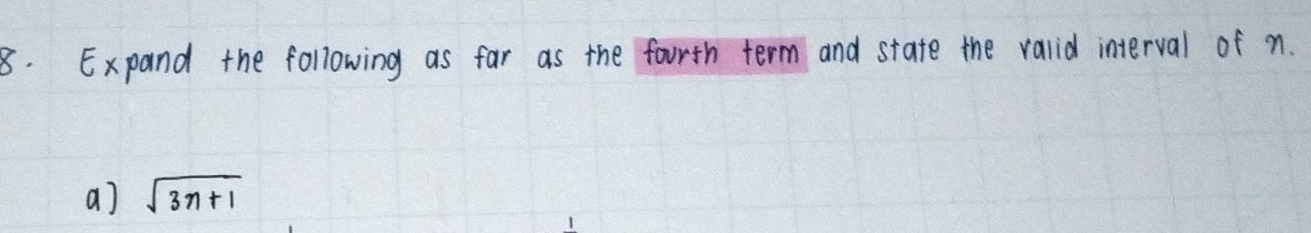 8. Expand the following as far as the fourth term and state the valid interval of x.
a) √3x+1